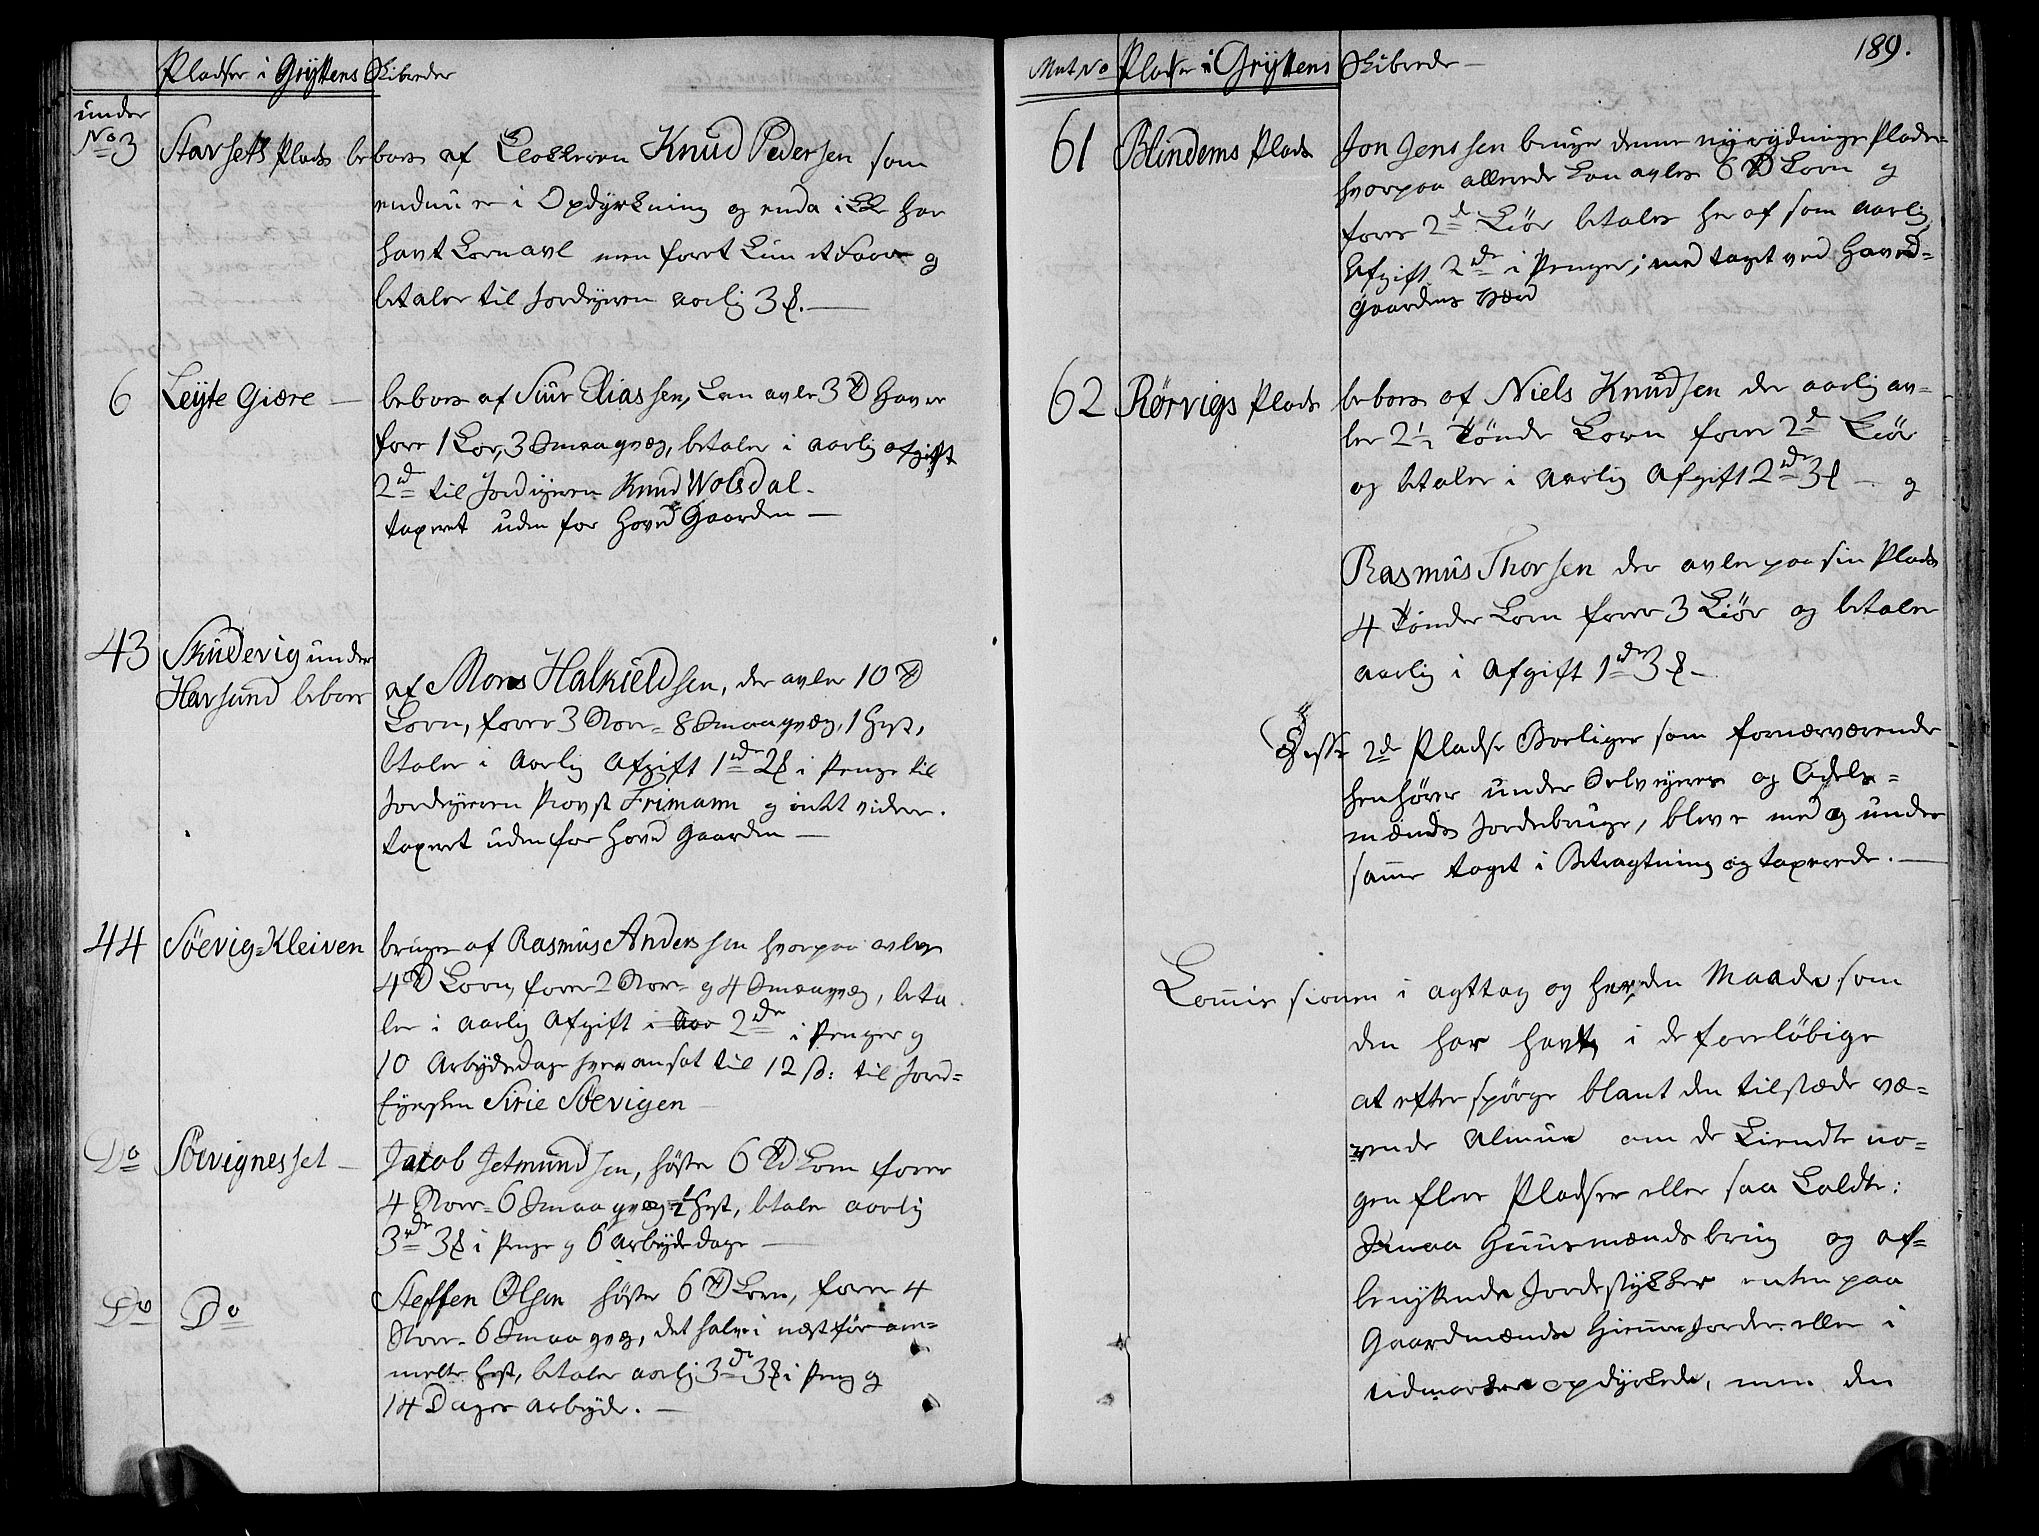 Pladser i Gryttens Skibrede
under
No 3 Stavsets Plads beboes af Klokkeren Knud Pedersen som
endnu er i Opdyrkning og enda ikke har
havt Kornavl men foret kun et Faar og
betaler til Jordeyeren aarlig 3 ß.
6 Leyte Giære — beboes af Siur Eliassen, kan avle 3 Td Havre
foer 1 Kor, 3 Smaaqvæg, betaler i aarlig afgift
2 rd til Jordeyeren Knud Wolsdal.
taxeret uden for Hoved Gaarden —
43 Skudevig under
Harsund beboes af Mons Halkieldsen, der avler 10 Td
Korn, forer 3 Stor- 8 Smaaqvæg, 1 Hest,
betaler i Aarlig Afgift 1 rdr 2 ß i Penge til
Jordeyeren Provst Frimann og intet videre.
taxeret uden for Hoved Gaarden —
44 Söevig=Kleiven bruges af Rasmus Anderssen hvorpaa avles
4 Td Korn, forer 2 Stor- og 4 Smaaqvæg, beta
ler i Aarlig Afgift i Aar 2 rdr i Penger og
10 Arbeydsdage hver ansat til 12 ß: til Jord=
Eyersken Sirie Söevigen
Do Söevignesset — Jacob Jetmundsen, höster 6 Td Korn forer
4 Stor- 6 Smaaqvæg ½ Hest, betaler aarlig
3 rdr 3 ß i Penge og 6 Arbeydsdage —
Do Do Steffen Olsen höster 6 Td Korn, forer 4
Stor- 6 Smaaqvæg, det halve i næst för om=
melte Hest, betaler aarlig 3 rdr 3 ß i Peng og
14 Dages Arbeyde. —
189.
Mat No Pladser i Gryttens Skibrede —
61 Blindems Plads Jon Jenssen bruger denne nyrydnings Plads
hvorpaa allerede kan avles 6 Td Korn og
forer 2de Kiör betaler her af som aarlig
Afgift 2 rdr i Penger; med taget ved Hoved=
gaardens Værd
62 Rörvigs Plads beboes af Niels Knudsen der aarlig av=
ler 2½ Tönde Korn forer 2de Kiör
og betaler i Aarlig Afgift 2 rdr 3 ß — og
Rasmus Thorsen der avler paa sin Plads
4 Tönder Korn forer 3 Kiör og betaler
aarlig i Afgift 1 rdr 3 ß —
Disse 2de Pladse Boeliger som fornærværende
henhörer under Selveyeres og Odels=
mænds Jordebruge, bleve med og under
samme taget i Betragtning og taxerede. —
Commissionen i agttog og her den Maade som
den har havt, i de foreløbige
at efterspörge blant den tilstæde væ=
rende Almue om de kiendte no=
gen flere Pladser eller saa kaldte:
Smaa Huusmænds brug og af=
benyttende Jordestykker enten paa
Gaardmænds Hiemme Jorder eller i
udmarken opdyrkede, men den